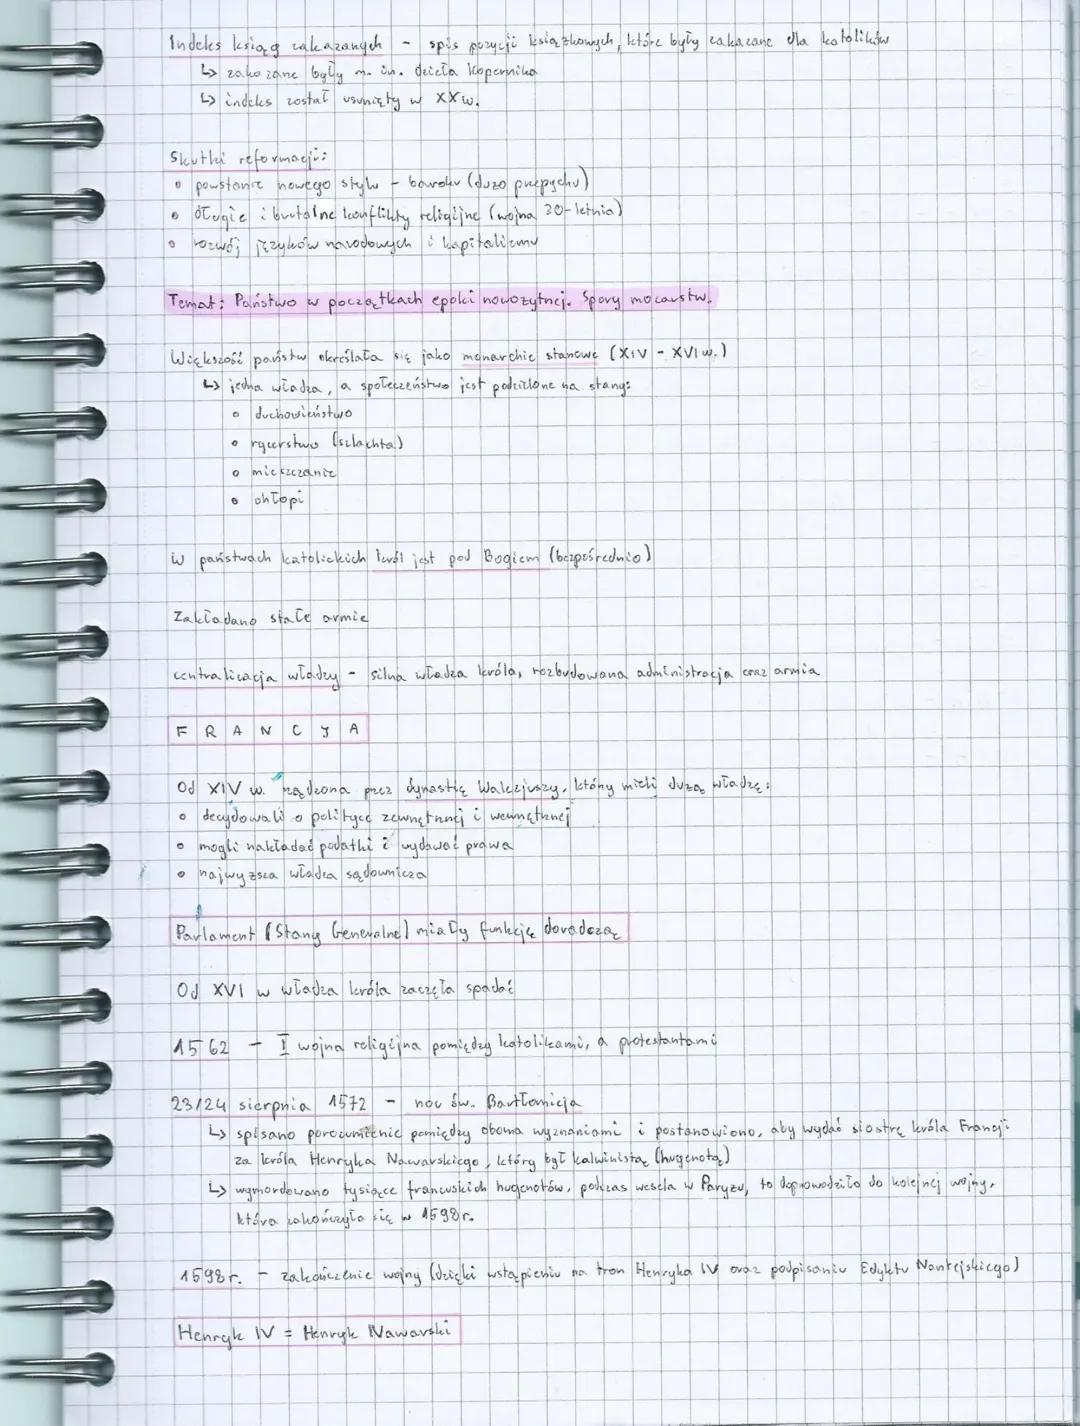 Indeks ksiąg zakazanych - spis pozycji książkowych, które były zakazane dla katolików
↳ zakazane były m. in. dzieła Kopernika
↳ indeks został usunięty w XXw.
Skutki reformacji:
• powstanie nowego stylu - baroku (dużo przepychu)
• długie i brutalne konflikty religijne (wojna 30-letnia)
• rozwój języków narodowych i kapitalizmu
Temat: Państwo w początkach epoki nowożytnej. Spory mocarstw.
Większość państw określała się jako monarchie stanowe (XIV - XVI w.)
↳ jedna władza, a społeczeństwo jest podzielone na stany:
• duchowieństwo
• rycerstwo (szlachta)
• mieszczanie
• chłopi
W państwach katolickich król jest pod Bogiem (bezpośrednio)
Zakładano stałe armie
centralizacja władzy - silna władza króla, rozbudowana administracja oraz armia
FRANCJA
Od XIV w. rządzona przez dynastię Walezjuszy, który mieli dużą władzę:
• decydowali o polityce zewnętrznej i wewnętrznej
• mogli nakładać podatki i wydawać prawa
• najwyższa władza sądownicza
Parlament (Stany Generalne) miały funkcję doradczą
Od XVI w władza króla zaczęła spadać
1562 - I wojna religijna pomiędzy katolikami, a protestantami
23/24 sierpnia 1572 - noc św. Bartłomieja
↳ spisano porozumienie pomiędzy oboma wyznaniami i postanowiono, aby wydać siostrę króla Francji
za króla Henryka Nawarskiego, który był kalwinistą (hugenotą)
↳ wymordowano tysiące francuskich hugenotów, podczas wesela w Paryżu, to doprowadziło do kolejnej wojny,
która zakończyła się w 1598r.
1598r. - zakończenie wojny (dzięki wstąpieniu na tron Henryka IV oraz podpisaniu Edyktu Nantejskiego)
Henryk IV = Henryk Nawarski